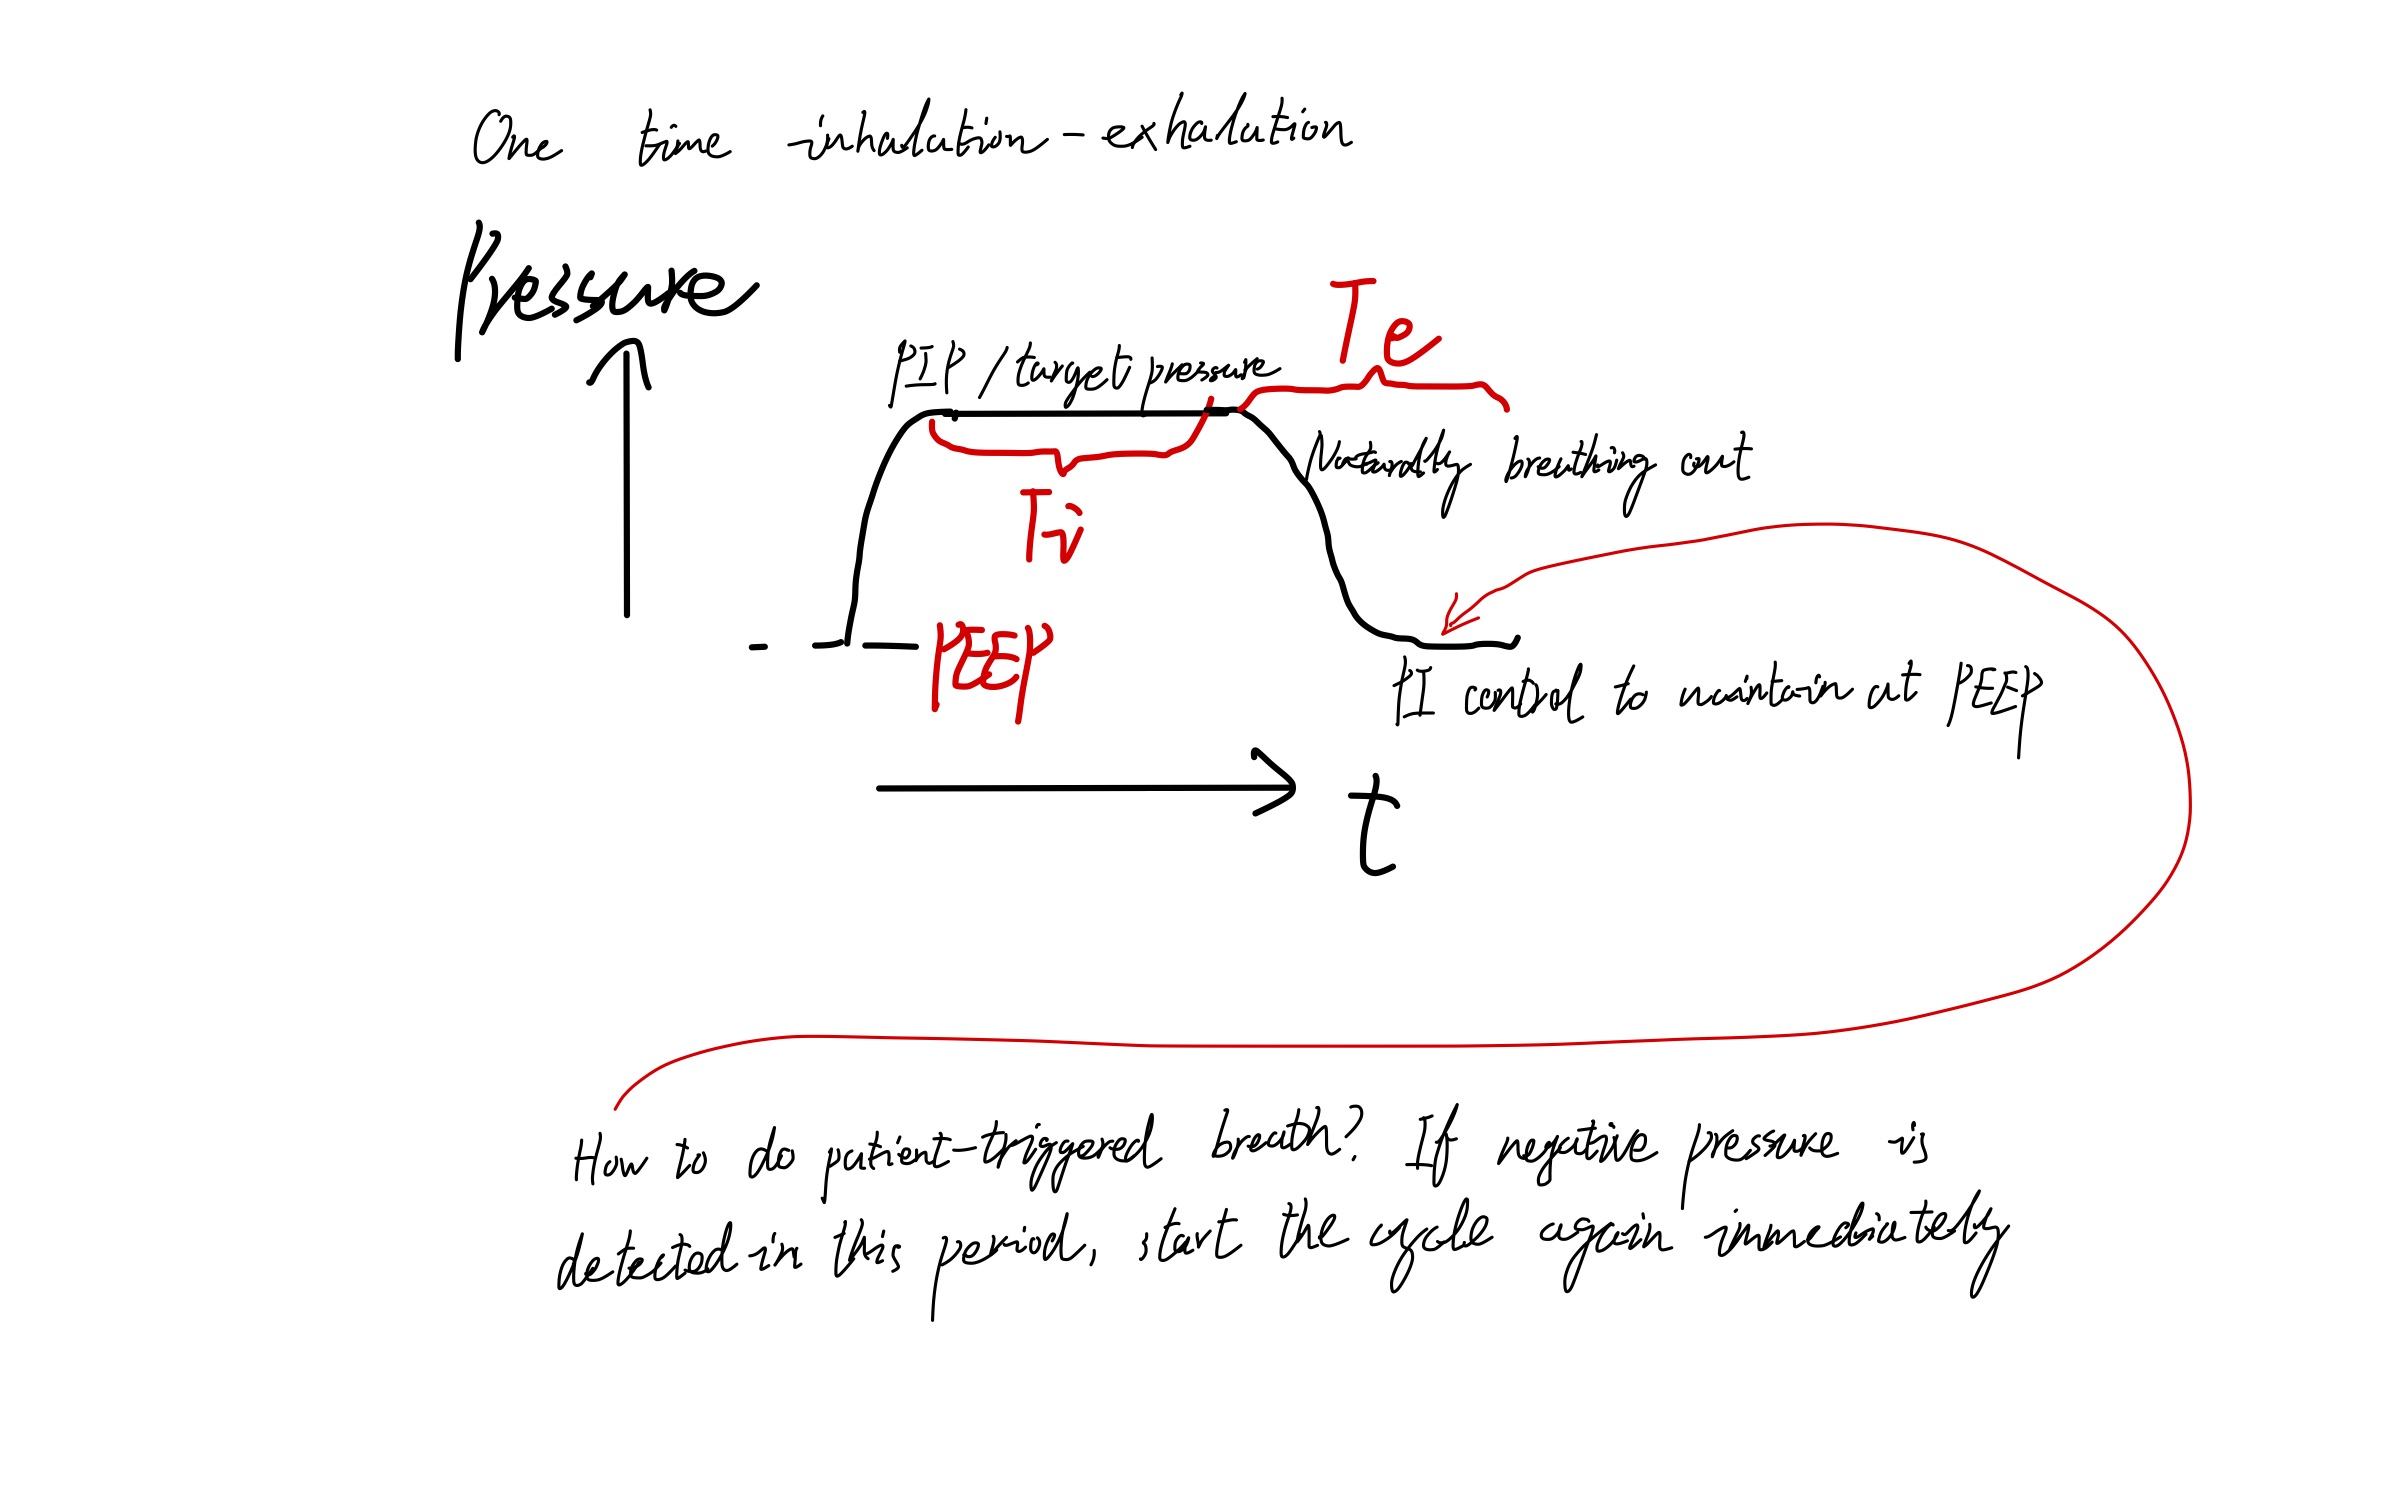 One time inhalation-exhalation
Pressure
Te
PIP / target pressure
Naturally breathing out
Ti
PEEP
PI control to maintain at PEEP
t
How to do patient-triggered breath? If negative pressure is
detected in this period, start the cycle again immediately